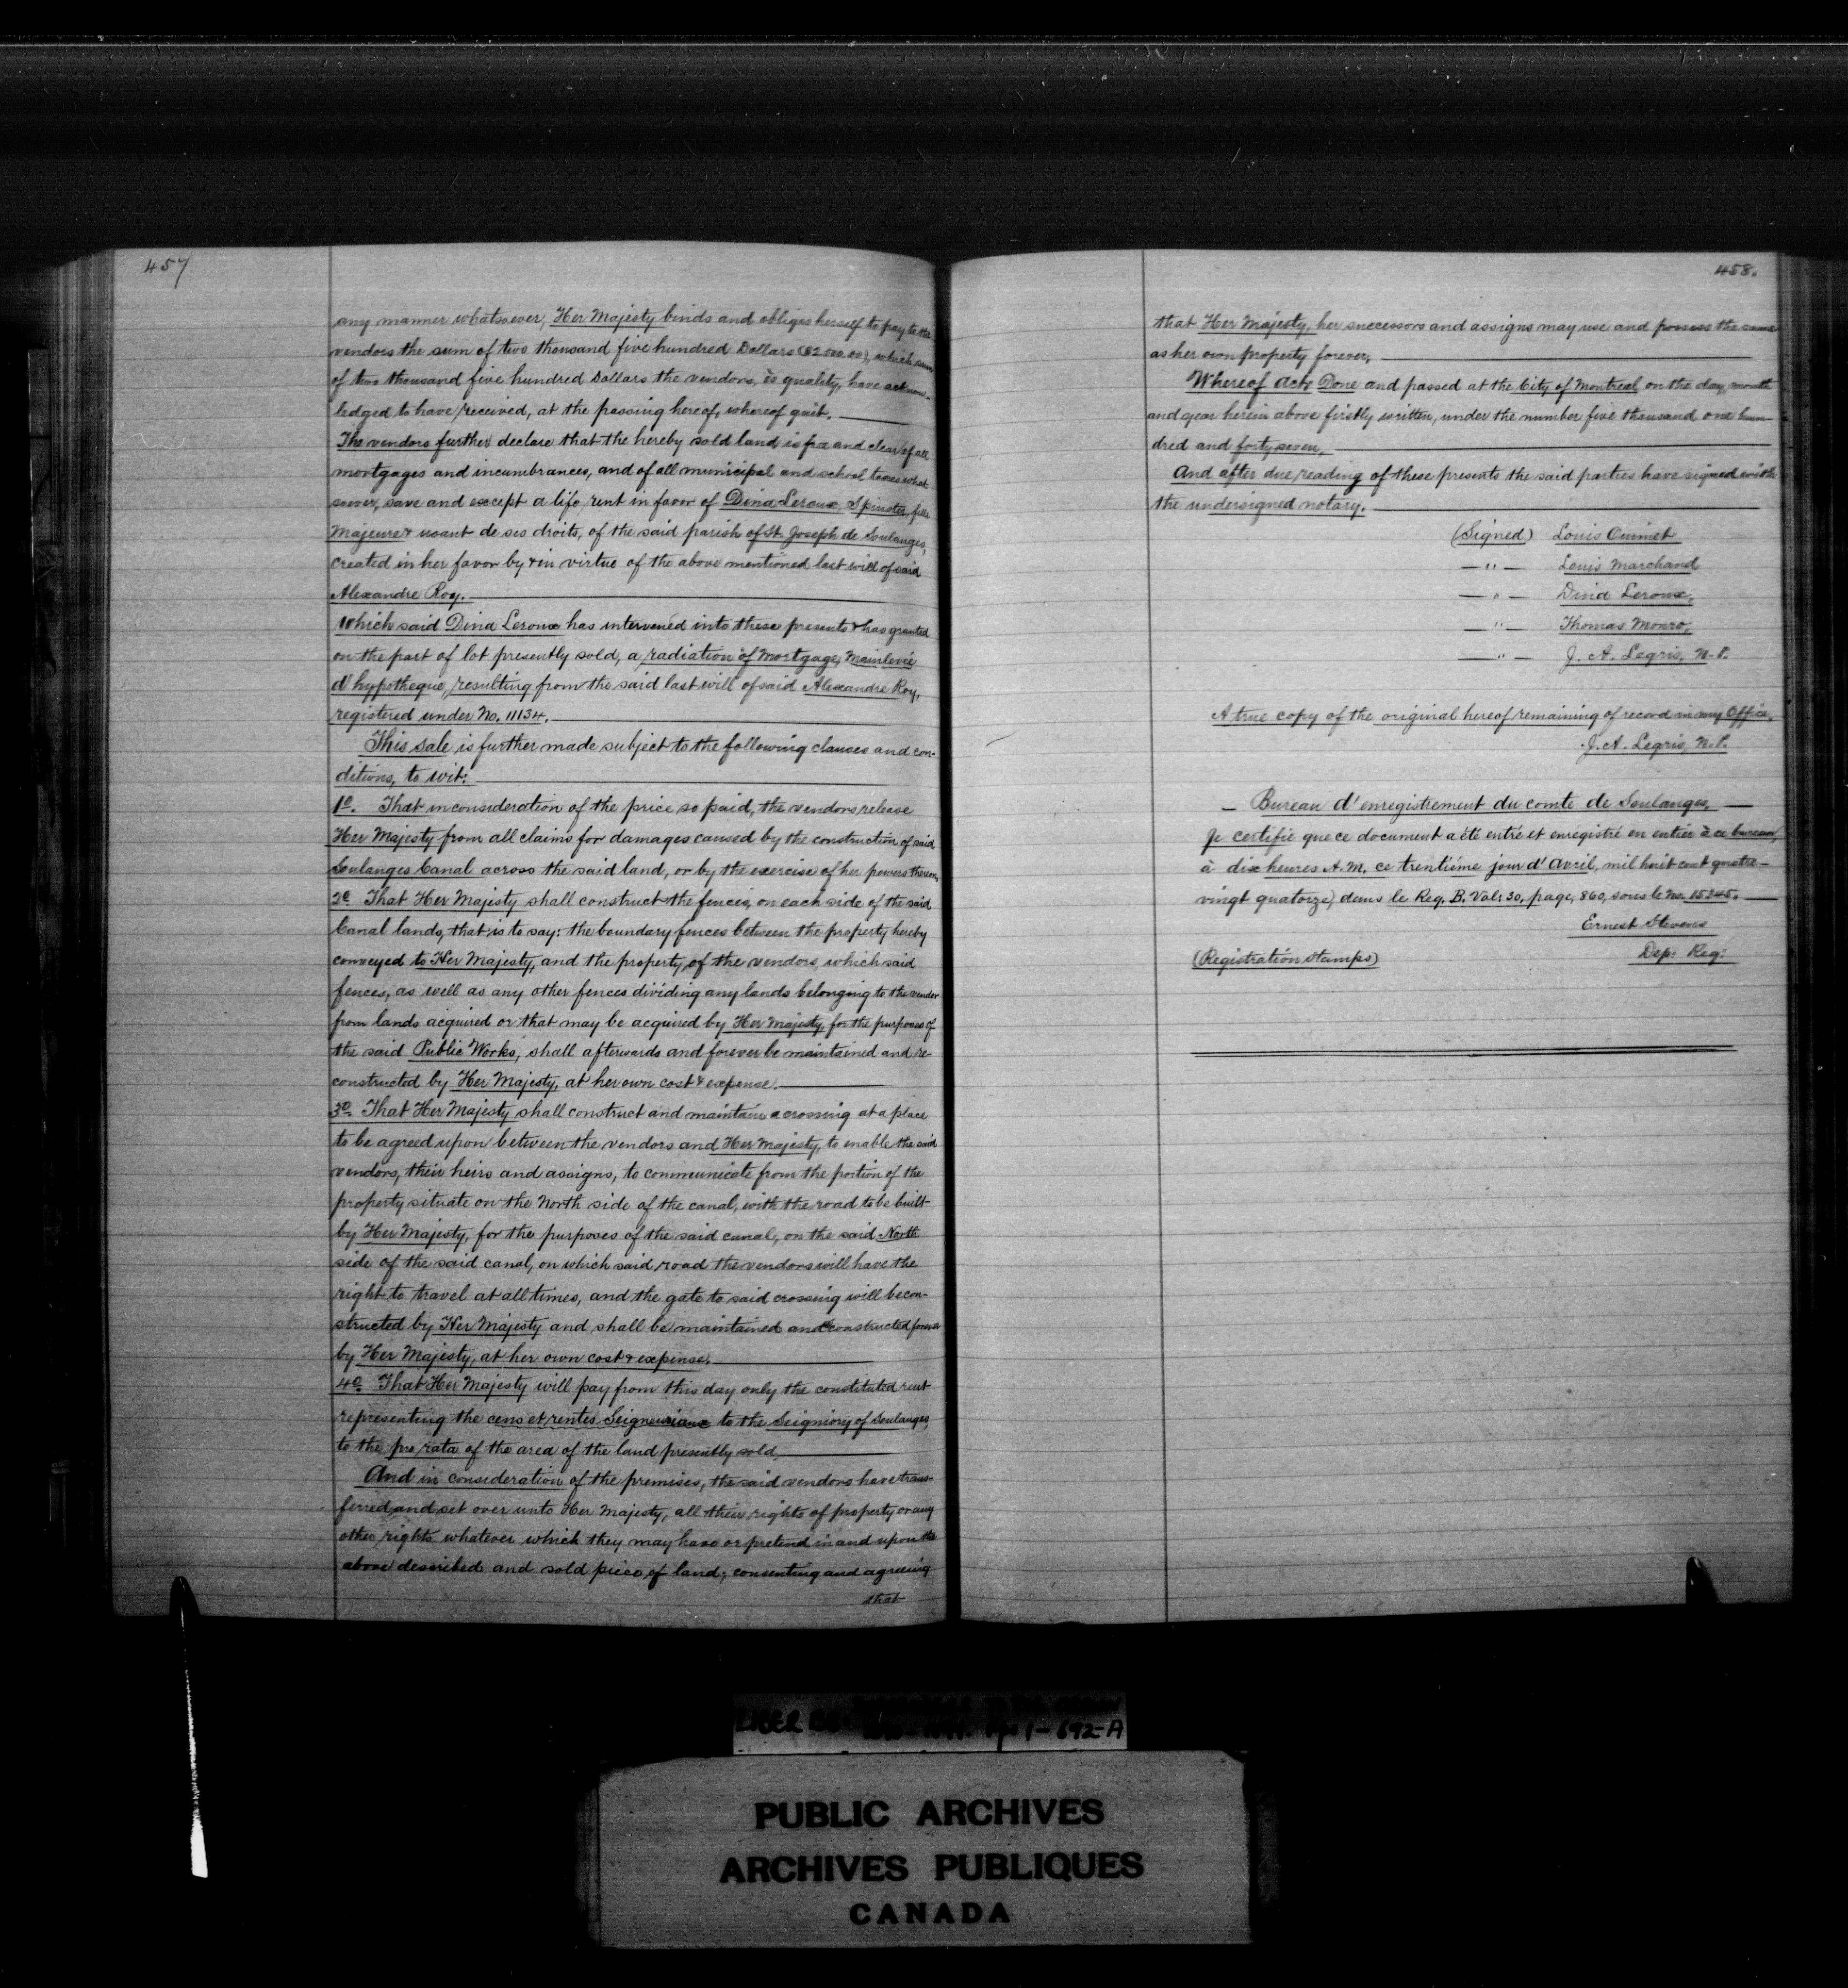 457
any manner whatsoever, Her Majesty binds and obliges herself to pay to the
vendors the sum of two thousand five hundred Dollars ($2500.00), which sum
of two thousand five hundred Dollars the vendors, ès quality, have acknow-
ledged to have received, at the passing hereof, whereof quit.
The vendors further declare that the hereby sold land is free and clear of all
mortgages and incumbrances, and of all municipal and school taxes what-
soever, save and except a life rent in favor of Dina Leroux, Spinster, fille
Majeure & usant de ses droits, of the said parish of St. Joseph de Soulanges,
created in her favor by & in virtue of the above mentioned last will of said
Alexandre Roy.
Which said Dina Leroux has intervened into these presents & has granted
on the part of lot presently sold, a radiation of Mortgage, Mainlevée
d'hypotheque, resulting from the said last will of said Alexandre Roy,
registered under No. 11134.
This sale is further made subject to the following clauses and con-
ditions, to wit:
1o. That in consideration of the price so paid, the vendors release
Her Majesty from all claims for damages caused by the construction of said
Soulanges Canal across the said land, or by the exercise of her powers thereon,
2o That Her Majesty shall construct the fences, on each side of the said
Canal lands, that is to say: the boundary fences between the property hereby
conveyed to Her Majesty, and the property of the vendors, which said
fences, as well as any other fences dividing any lands belonging to the vendor
from lands acquired or that may be acquired by Her Majesty, for the purposes of
the said Public Works, shall afterwards and forever be maintained and re-
constructed by Her Majesty, at her own cost & expense.
3o That Her Majesty shall construct and maintain a crossing at a place
to be agreed upon between the vendors and Her Majesty, to enable the said
vendors, their heirs and assigns, to communicate from the portion of the
property situate on the North side of the canal, with the road to be built
by Her Majesty, for the purposes of the said canal, on the said North
side of the said canal, on which said road the vendors will have the
right to travel at all times, and the gate to said crossing will be con-
structed by Her Majesty and shall be maintained and reconstructed forever
by Her Majesty, at her own cost & expense.
4o That Her Majesty will pay from this day only the constituted rent
representing the cens et rentes Seigneuriaux to the Seigniory of Soulanges,
to the pro rata of the area of the land presently sold,
And in consideration of the premises, the said vendors have trans-
ferred and set over unto Her Majesty, all their rights of property or any
other rights whatever which they may have or pretend in and upon the
above described and sold piece of land; consenting and agreeing
that
458.
that Her Majesty, her successors and assigns may use and possess the same
as her own property forever,
Whereof Act, Done and passed at the City of Montreal on the day, month
and year herein above firstly written, under the number five thousand one hun-
dred and forty seven,
And after due reading of these presents the said parties have signed with
the undersigned notary.
(Signed) Louis Ouimet
— " — Louis Marchand
— " — Dina Leroux,
— " — Thomas Monro,
— " — J. A. Legris, N.P.
A true copy of the original hereof remaining of record in my Office,
J. A. Legris, N.P.
— Bureau d'enregistrement du comte de Soulanges, —
Je certifie que ce document a été entré et enregistré en entier à ce bureau,
à dix heures A.M. ce trentième jour d'Avril, mil huit cent quatre-
vingt quatorze) dans le Reg. B. Vol: 30, page, 860, sous le No. 15345.
Ernest Stevens
(Registration Stamps) Dep: Reg:
LIBER 1- 692-A
PUBLIC ARCHIVES
ARCHIVES PUBLIQUES
CANADA